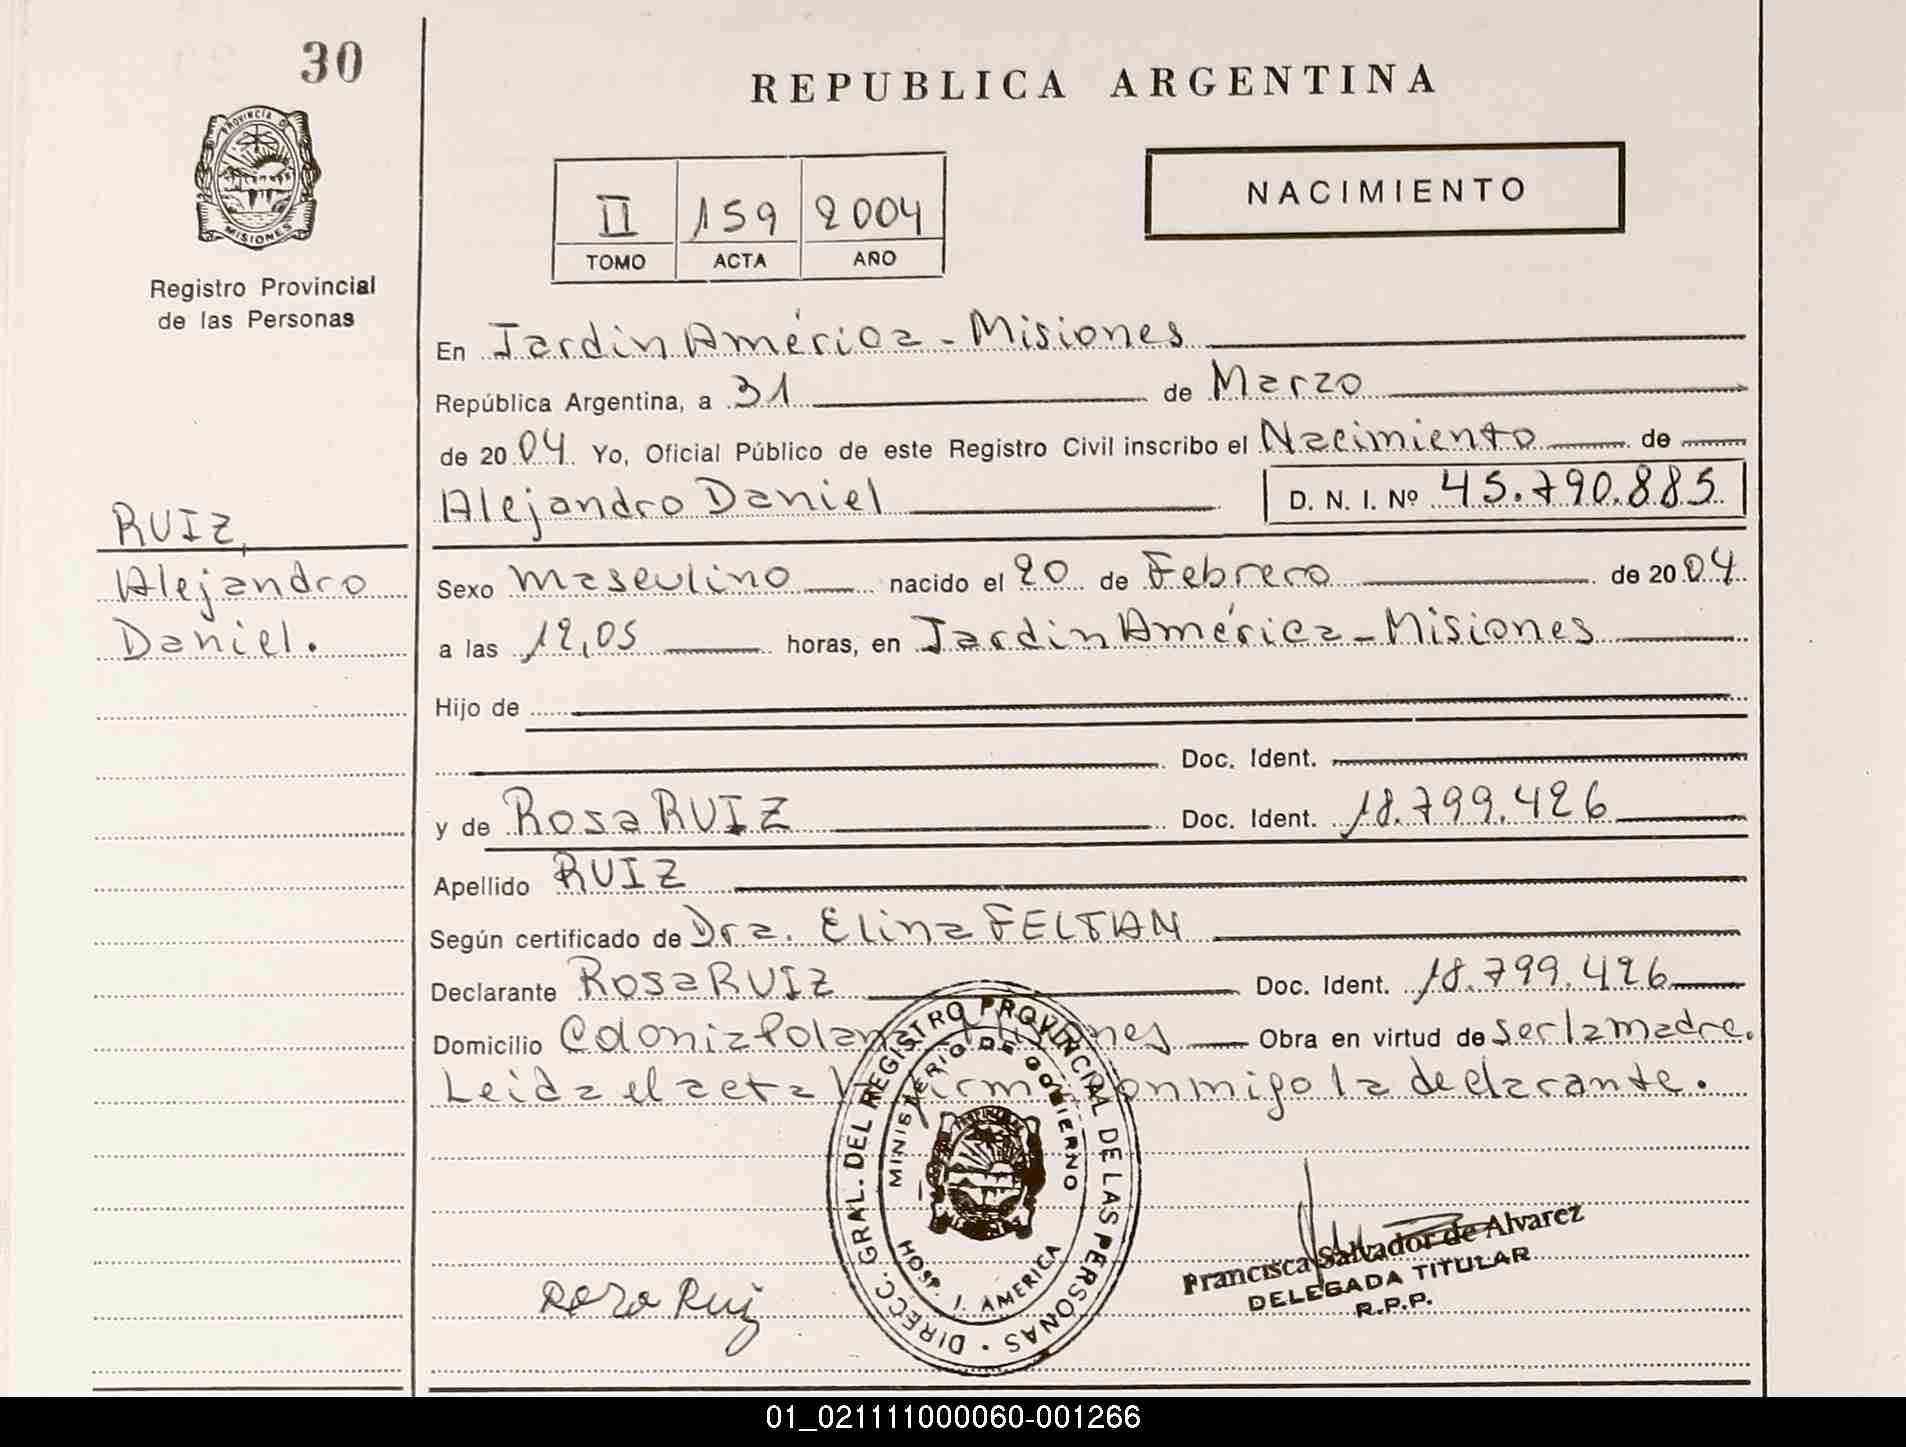 30
PROVINCIA DE
MISIONES
Registro Provincial
de las Personas
RUIZ,
Alejandro
Daniel.
REPUBLICA ARGENTINA
II 159 2004
TOMO ACTA AÑO
NACIMIENTO
En Jardin América - Misiones
República Argentina, a 31 de Marzo
de 2004 Yo, Oficial Público de este Registro Civil inscribo el Nacimiento de
Alejandro Daniel D. N. I. Nº 45.790.885
Sexo masculino nacido el 20 de Febrero de 2004
a las 12,05 horas, en Jardin América - Misiones
Hijo de
Doc. Ident.
y de Rosa RUIZ Doc. Ident. 18.799.426
Apellido RUIZ
Según certificado de Dra. Elina FELTAN
Declarante Rosa RUIZ Doc. Ident. 18.799.426
Domicilio Colonia Polana Obra en virtud de ser la madre.
Leida el acta la firma conmigo la declarante.
DIRECC. GRAL. DEL REGISTRO PROVINCIAL DE LAS PERSONAS
MINISTERIO DE GOBIERNO
HOSP. J. AMERICA
Rosa Ruiz
Francisca Salvador de Alvarez
DELEGADA TITULAR
R.P.P.
01_021111000060-001266